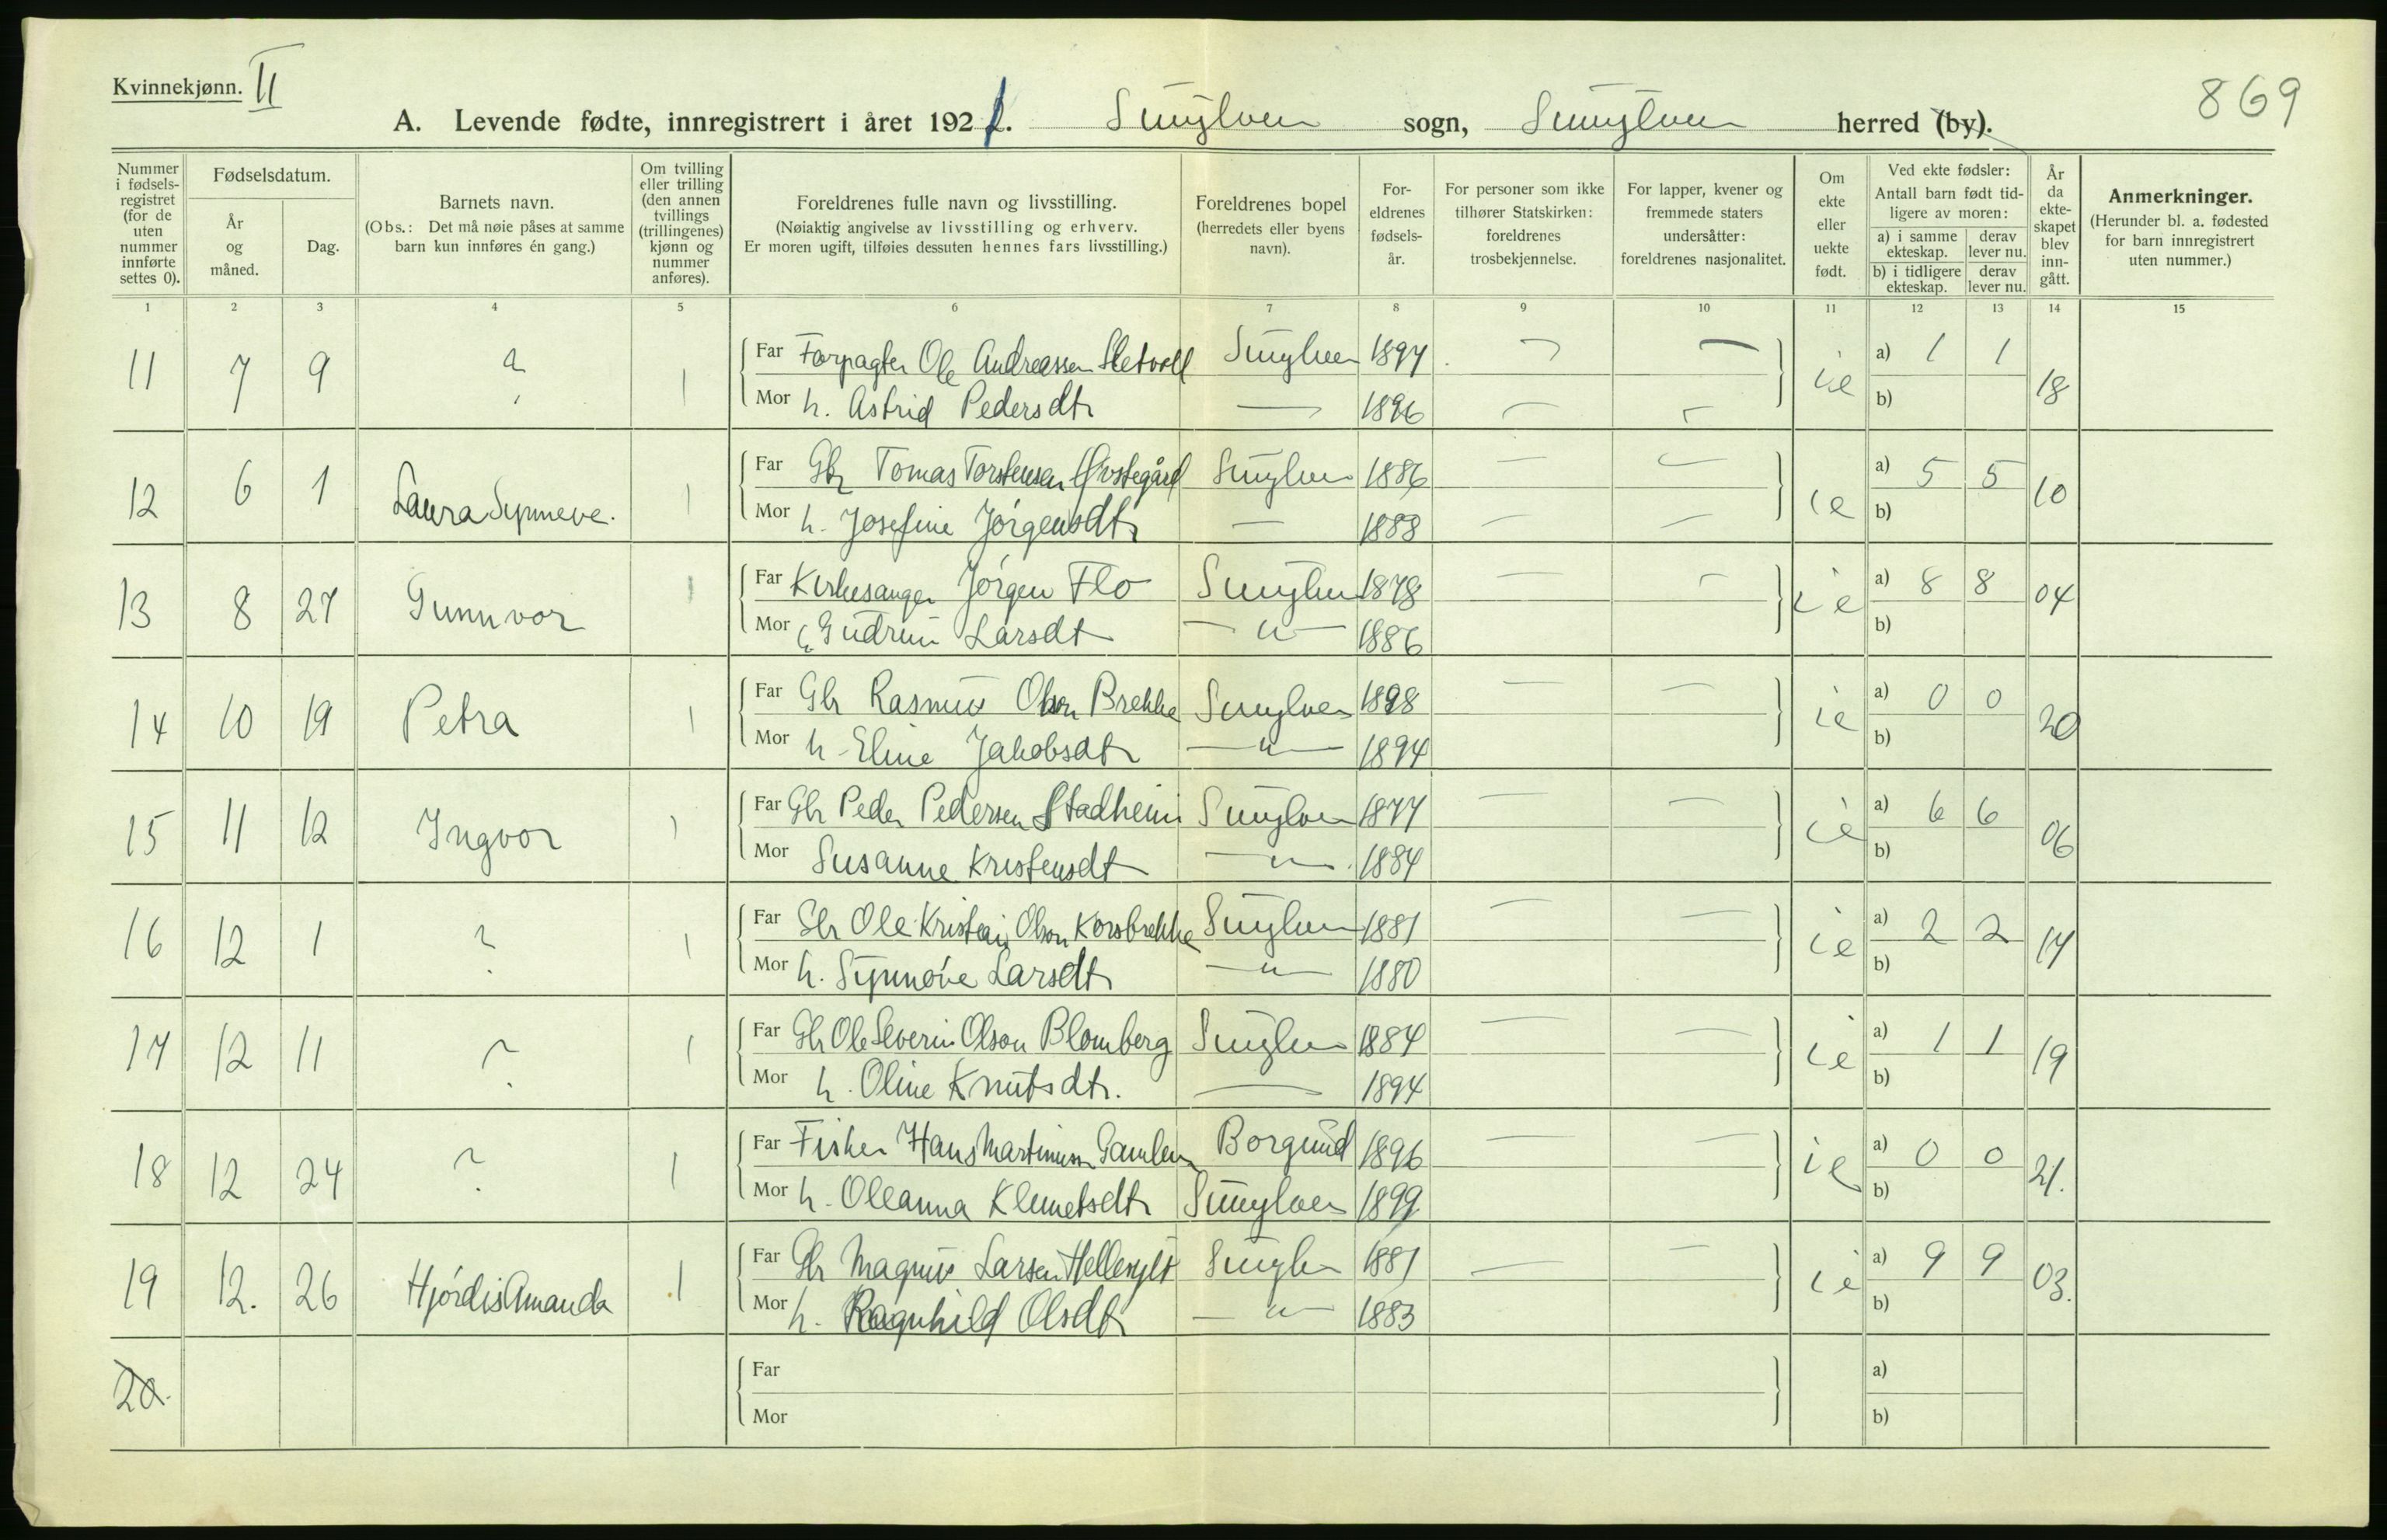 Kvinnekjønn. II
869
A. Levende fødte, innregistrert i året 1921. Sunylven sogn, Sunylven herred (by).
Nummer i fødselsregistret (for de uten nummer innførte settes 0).
Fødselsdatum.
År og måned.
Dag.
Barnets navn.
(Obs.: Det må nøie påses at samme barn kun innføres én gang.)
Om tvilling eller trilling (den annen tvillings (trillingenes) kjønn og nummer anføres).
Foreldrenes fulle navn og livsstilling.
(Nøiaktig angivelse av livsstilling og erhverv.
Er moren ugift, tilføies dessuten hennes fars livsstilling.)
Foreldrenes bopel (herredets eller byens navn).
Foreldrenes fødselsår.
For personer som ikke tilhører Statskirken: foreldrenes trosbekjennelse.
For lapper, kvener og fremmede staters undersåtter: foreldrenes nasjonalitet.
Om ekte eller uekte født.
Ved ekte fødsler:
Antall barn født tidligere av moren:
a) i samme ekteskap. derav lever nu.
b) i tidligere ekteskap. derav lever nu.
År da ekteskapet blev inngått.
Anmerkninger.
(Herunder bl. a. fødested for barn innregistrert uten nummer.)
1 2 3 4 5 6 7 8 9 10 11 12 13 14 15
11 7 9 ? 1 Far Forpagter Ole Andreassen Sletvoll Sunylven 1897 — — ie a) 1 1 18
Mor h. Astrid Pedersdtr — 1896 — — b)
12 6 1 Laura Synneve. 1 Far Gbr Tomas Torstensen Øvstegård Sunylven 1886 — — ie a) 5 5 10
Mor h. Josefine Jørgensdtr — 1888 — — b)
13 8 27 Gunnvor 1 Far Kirkesanger Jørgen Flo Sunylven 1878 — — ie a) 8 8 04
Mor h Gudrun Larsdt — " — 1886 b)
14 10 19 Petra 1 Far Gbr Rasmus Olson Brekke Sunylven 1898 — — ie a) 0 0 20
Mor h. Eline Jakobsdtr — " — 1894 b)
15 11 12 Ingvor 1 Far Gbr Peder Pedersen Stadheim Sunylven 1877 — — ie a) 6 6 06
Mor Susanne Kristensdt — " — 1884 b)
16 12 1 ? 1 Far Gbr Ole Kristian Olson Korsbrekke Sunylven 1881 — — ie a) 2 2 17
Mor h. Synnøve Larsdtr — " — 1880 b)
17 12 11 ? 1 Far Gbr Ole Severin Olson Blomberg Sunylven 1884 — — ie a) 1 1 19
Mor h. Oline Knutsdtr. — 1894 b)
18 12 24 ? 1 Far Fisker Hans Martinussen Gamlem Borgund 1896 — — ie a) 0 0 21.
Mor h. Oleanna Klemetsdtr Sunylven 1899 b)
19 12. 26 Hjørdis Amanda 1 Far Gbr Magnus Larsen Hellesylt Sunylven 1881 — — ie a) 9 9 03.
Mor h. Ragnhild Olsdtr — " — 1883 b)
20. Far a)
Mor b)